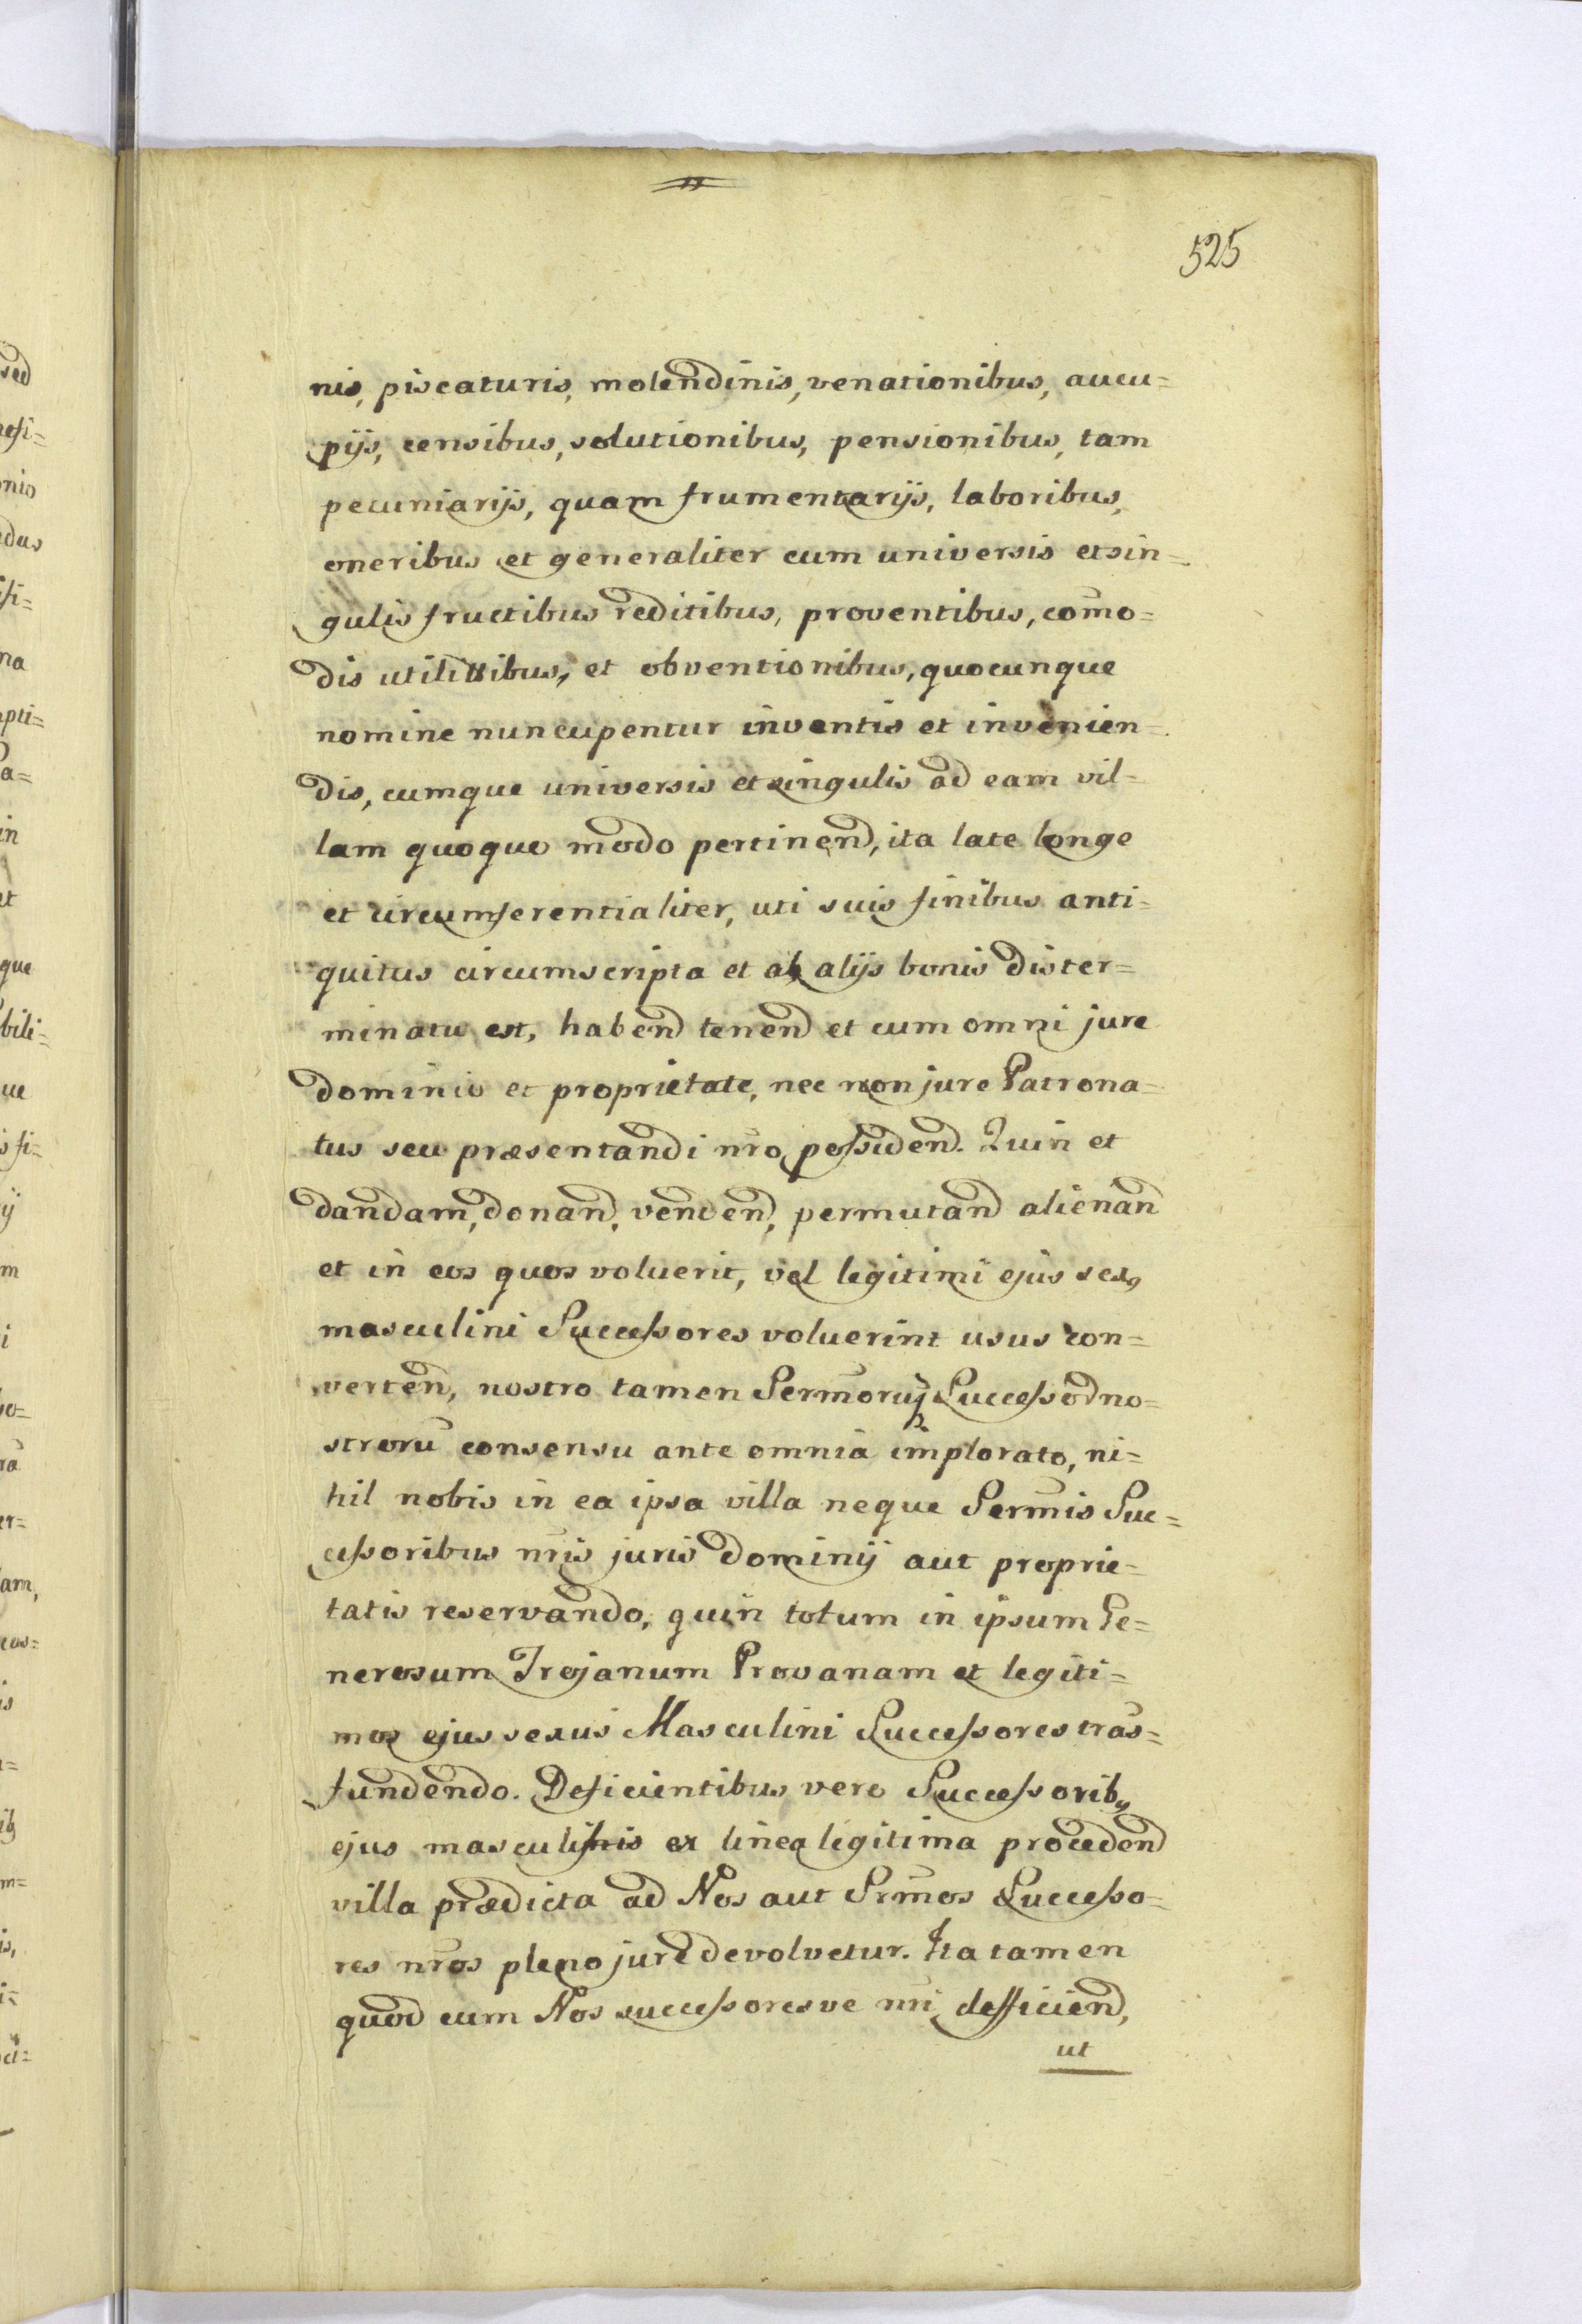 525
nis, piscaturis, molendinis, venationibus, aucu=
pijs, censibus, solutionibus, pensionibus, tam
pecuniarijs, quam frumentarijs, laboribus,
oneribus et generaliter cum universis et sin=
gulis fructibus reditibus, proventibus, como=
dis utilittibus, et obventionibus, quocunque
nomine nuncupentur inventis et invenien=
dis, cumque universis et singulis ad eam vil=
lam quoquo modo pertinend, ita late longe
et circumferentialiter, uti suis finibus anti=
quitus circumscripta et ab alijs bonis dister=
minata est, habend tenend et cum omni jure
dominio et proprietate, nec non jure Patrona=
tus seu præsentandi nro possidend. Quin et
dandam, donand, vendend, permutand alienand
et in eos quos voluerit, vel legitimi ejus sexq
masculini Successores voluerint usus con=
verten, nostro tamen Sermoruq Successod no=
stroru consensu ante omnia implorato, ni=
hil nobis in ea ipsa villa neque Sermis Suc=
cessoribus nris juris dominij aut proprie=
tatis reservando, quin totum in ipsum Ge=
nerosum Trojanum Provanam et legiti=
mos ejus sexus Masculini Successores tras=
fundendo. Deficientibus vero Successorib9
ejus masculinis ex linea legitima procedend
villa prædicta ad Nos aut Srmos Successo=
res nros pleno jure devolvetur. Ita tamen
quod cum Nos successoresve nri defficiend,
ut